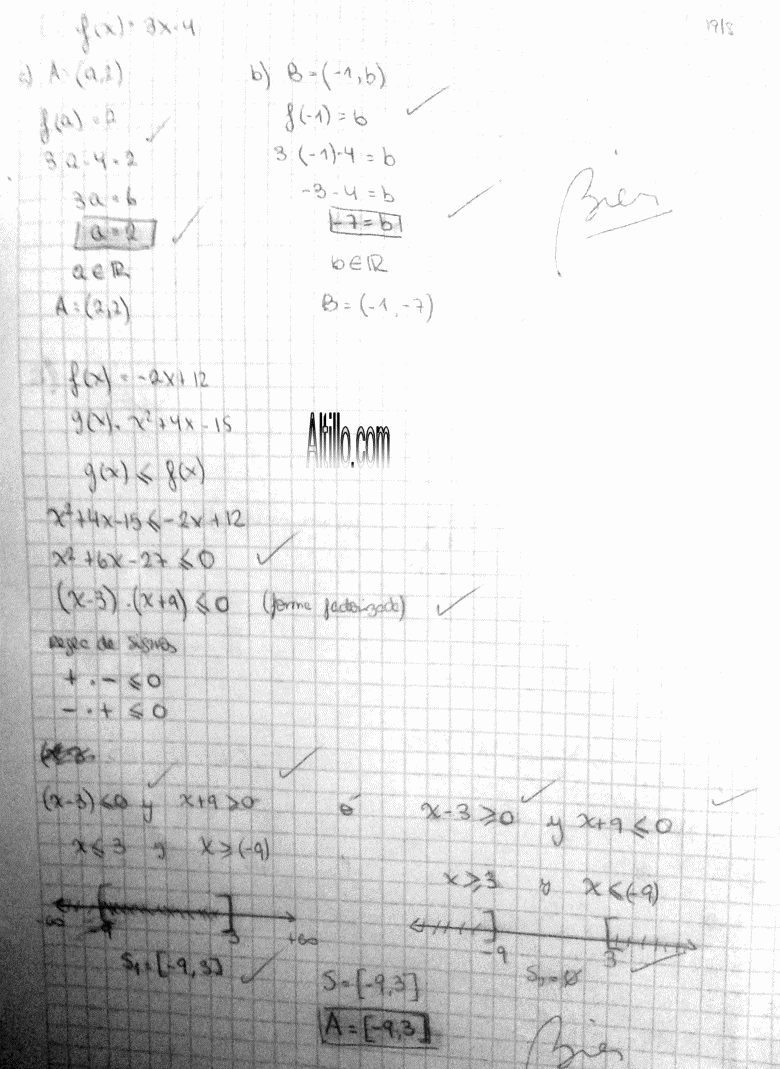 f(x) = 3x-4
19/8
a) A=(a,2)
f(a) = 2
3a-4=2
3a=6
a=2
a∈ℝ
A=(2,2)
b) B=(-1,b)
f(-1)=b
3·(-1)-4=b
-3-4=b
-7=b
b∈ℝ
B=(-1,-7)
Bien
f(x) = -2x+12
g(x) = x²+4x-15
Altillo.com
g(x) ≤ f(x)
x²+4x-15≤-2x+12
x²+6x-27≤0
(x-3)·(x+9)≤0 (forma factorizada)
de signos
+ · - ≤0
- · + ≤0
(x-3)≤0 y x+9≥0 ó x-3≥0 y x+9≤0
x≤3 y x≥(-9)
x≥3 y x≤(-9)
-∞ -9 3 +∞
-9 3
S₁=[-9,3]
S₂=∅
S=[-9,3]
A=[-9,3]
Bien